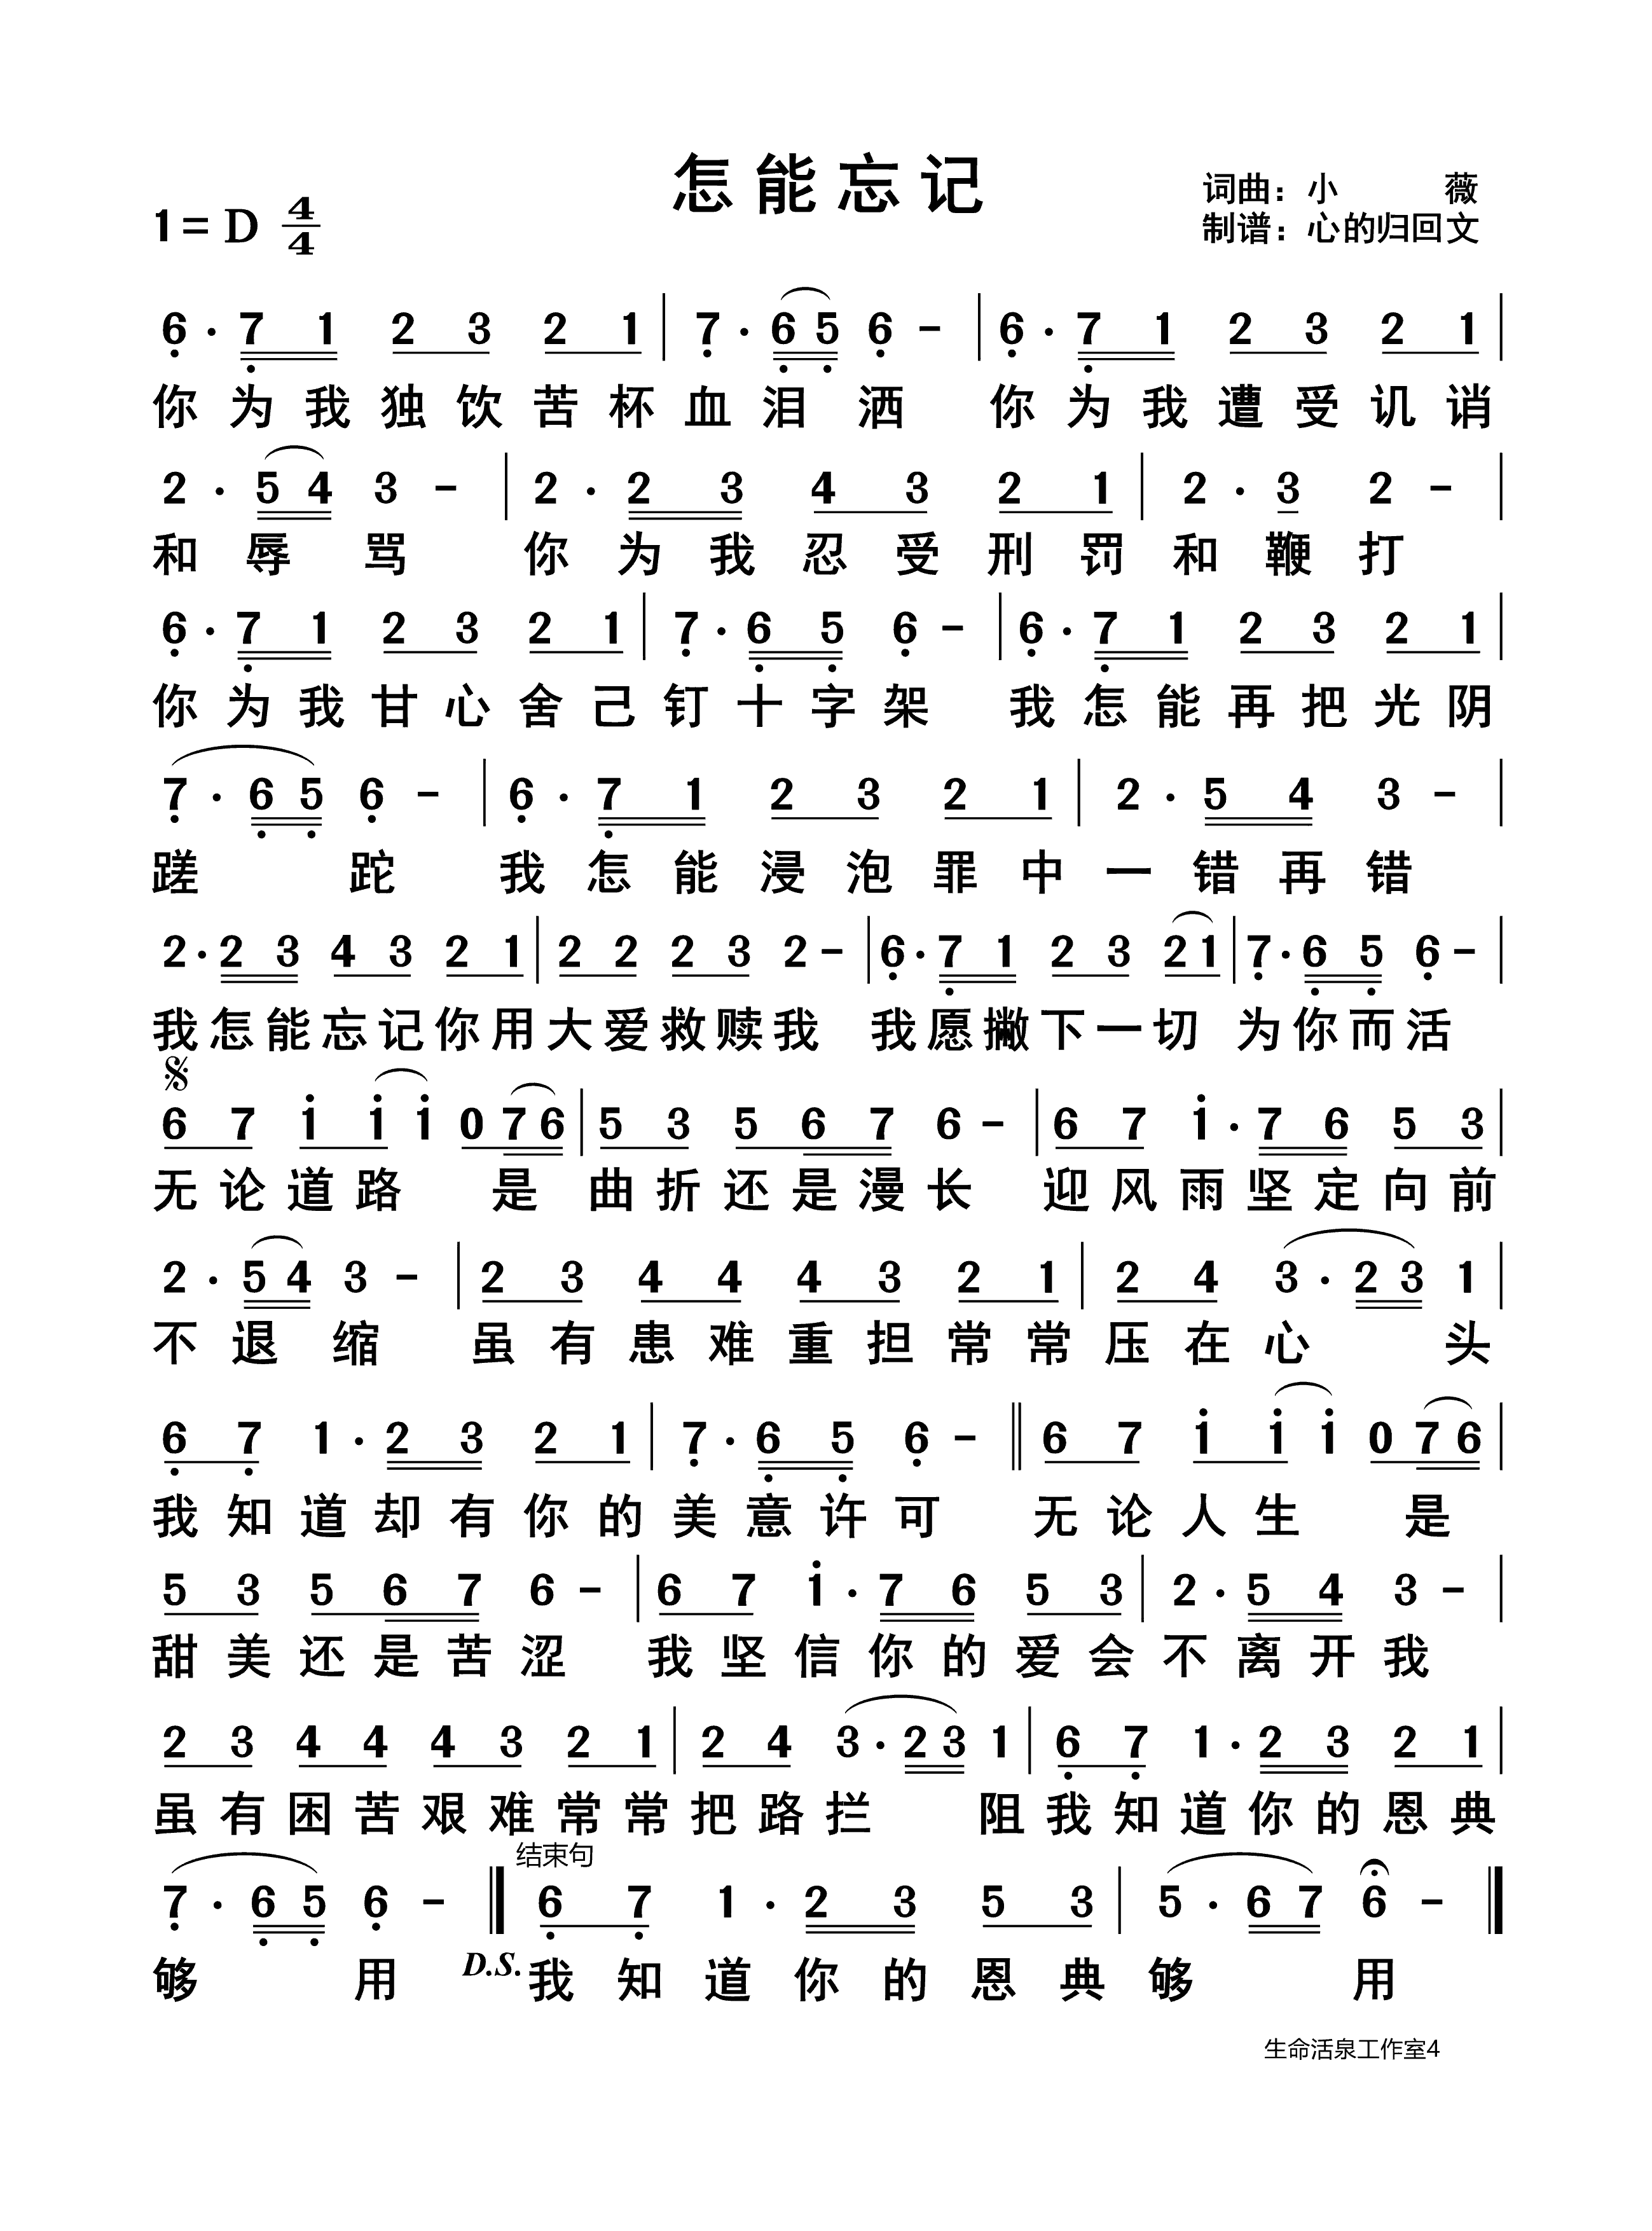 怎能忘记
词曲：小 薇
1=D 4/4
制谱：心的归回文
6·7 1 2 3 2 1 | 7·6 5 6 - | 6·7 1 2 3 2 1 |
你为我独饮苦杯血泪洒 你为我遭受讥诮
2·5 4 3 - | 2·2 3 4 3 2 1 | 2·3 2 - |
和辱骂 你为我忍受刑罚和鞭打
6·7 1 2 3 2 1 | 7·6 5 6 - | 6·7 1 2 3 2 1 |
你为我甘心舍己钉十字架 我怎能再把光阴
7·6 5 6 - | 6·7 1 2 3 2 1 | 2·5 4 3 - |
蹉 跎 我怎能浸泡罪中一错再错
2·2 3 4 3 2 1 | 2 2 2 3 2 - | 6·7 1 2 3 2 1 | 7·6 5 6 - |
我怎能忘记你用大爱救赎我 我愿撇下一切 为你而活
6 7 1 1 1 0 7 6 | 5 3 5 6 7 6 - | 6 7 1·7 6 5 3 |
无论道路 是 曲折还是漫长 迎风雨坚定向前
2·5 4 3 - | 2 3 4 4 4 3 2 1 | 2 4 3·2 3 1 |
不退缩 虽有患难重担常常压在心 头
6 7 1·2 3 2 1 | 7·6 5 6 - || 6 7 1 1 1 0 7 6 |
我知道却有你的美意许可 无论人生 是
5 3 5 6 7 6 - | 6 7 1·7 6 5 3 | 2·5 4 3 - |
甜美还是苦涩 我坚信你的爱会不离开我
2 3 4 4 4 3 2 1 | 2 4 3·2 3 1 | 6 7 1·2 3 2 1 |
虽有困苦艰难常常把路拦 阻我知道你的恩典
结束句
7·6 5 6 - || 6 7 1·2 3 5 3 | 5·6 7 6 - ||
够 用 D.S. 我知道你的恩典够 用
生命活泉工作室4